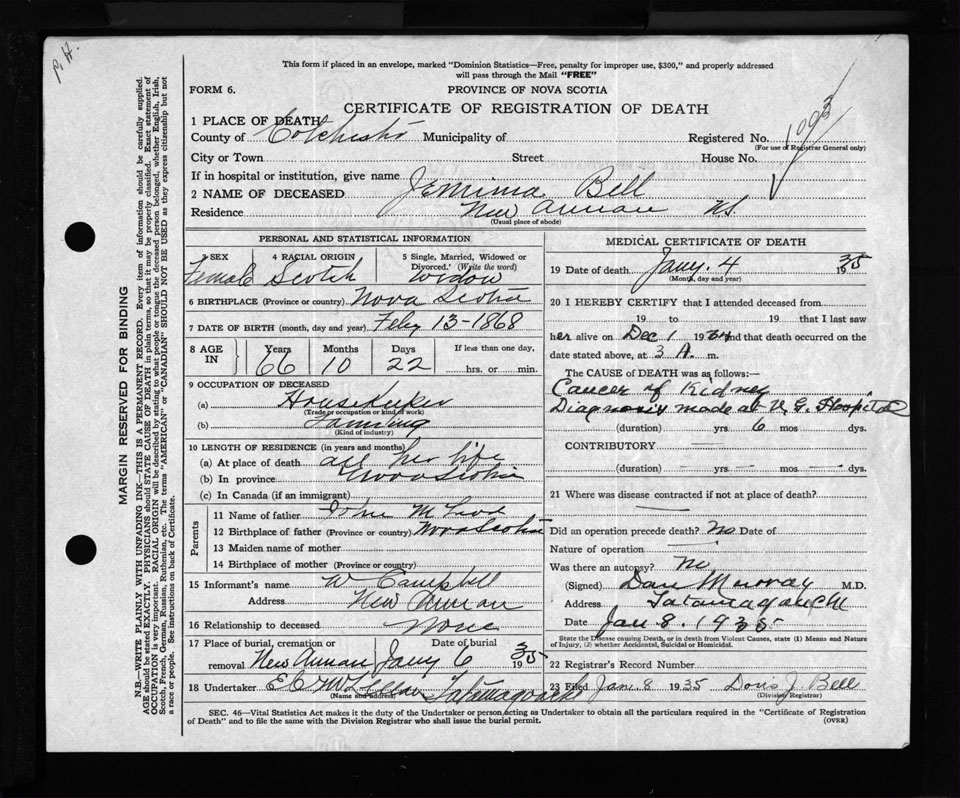 P. H.
This form if placed in an envelope, marked "Dominion Statistics—Free, penalty for improper use, $300," and properly addressed
will pass through the Mail "FREE"
FORM 6.
PROVINCE OF NOVA SCOTIA
CERTIFICATE OF REGISTRATION OF DEATH
1093
1 PLACE OF DEATH
County of Colchester Municipality of Registered No.
(For use of Registrar General only)
City or Town Street House No.
If in hospital or institution, give name
2 NAME OF DECEASED Jemima Bell
Residence New Annan N.S.
(Usual place of abode)
PERSONAL AND STATISTICAL INFORMATION
3 SEX 4 RACIAL ORIGIN 5 Single, Married, Widowed or
Divorced.' (Write the word)
Female Scotch Widow
6 BIRTHPLACE (Province or country) Nova Scotia
7 DATE OF BIRTH (month, day and year) Feby 13-1868
8 AGE IN Years Months Days If less than one day,
66 10 22 hrs. or min.
9 OCCUPATION OF DECEASED
(a) Housekeeper
(Trade or occupation or kind of work)
(b) Farming
(Kind of industry)
10 LENGTH OF RESIDENCE (in years and months)
(a) At place of death all her life
(b) In province Nova Scotia
(c) In Canada (if an immigrant)
Parents
11 Name of father John M
12 Birthplace of father (Province or country) Nova Scotia
13 Maiden name of mother
14 Birthplace of mother (Province or country)
15 Informant's name W Campbell
Address New Annan
16 Relationship to deceased None
17 Place of burial, cremation or Date of burial
removal New Annan Jany 6 1935
18 Undertaker E C McLellan Tatamagouche
(Name and address)
MEDICAL CERTIFICATE OF DEATH
19 Date of death Jany. 4 1935
(Month, day and year)
20 I HEREBY CERTIFY that I attended deceased from
19 to 19 that I last saw
her alive on Dec 1 1934 and that death occurred on the
date stated above, at 3 A. m.
The CAUSE OF DEATH was as follows:—
Cancer of Kidney
Diagnosis made at V. G. Hospital
(duration) yrs 6 mos dys.
CONTRIBUTORY —
(duration) — yrs — mos — dys.
21 Where was disease contracted if not at place of death?
—
Did an operation precede death? No Date of
Nature of operation —
Was there an autopsy? No
(Signed) Dan Murray M.D.
Address Tatamagouche
Date Jan 8. 1935
State the Disease causing Death, or in death from Violent Causes, state (1) Means and Nature
of Injury, (2) whether Accidental, Suicidal or Homicidal.
22 Registrar's Record Number
23 Filed Jan. 8 1935 Doris J. Bell
(Division Registrar)
SEC. 46—Vital Statistics Act makes it the duty of the Undertaker or person acting as Undertaker to obtain all the particulars required in the "Certificate of Registration
of Death" and to file the same with the Division Registrar who shall issue the burial permit.
(OVER)
MARGIN RESERVED FOR BINDING
N.B.—WRITE PLAINLY WITH UNFADING INK—THIS IS A PERMANENT RECORD. Every item of information should be carefully supplied.
AGE should be stated EXACTLY. PHYSICIANS should STATE CAUSE OF DEATH in plain terms, so that it may be properly classified. Exact statement of
OCCUPATION is very important. RACIAL ORIGIN will be described by stating to what people or tongue the deceased person belonged, whether English, Irish,
Scotch, French, German, Russian, Ruthenian, etc. The terms "AMERICAN" or "CANADIAN" SHOULD NOT BE USED as they express citizenship but not
a race or people. See instructions on back of Certificate.